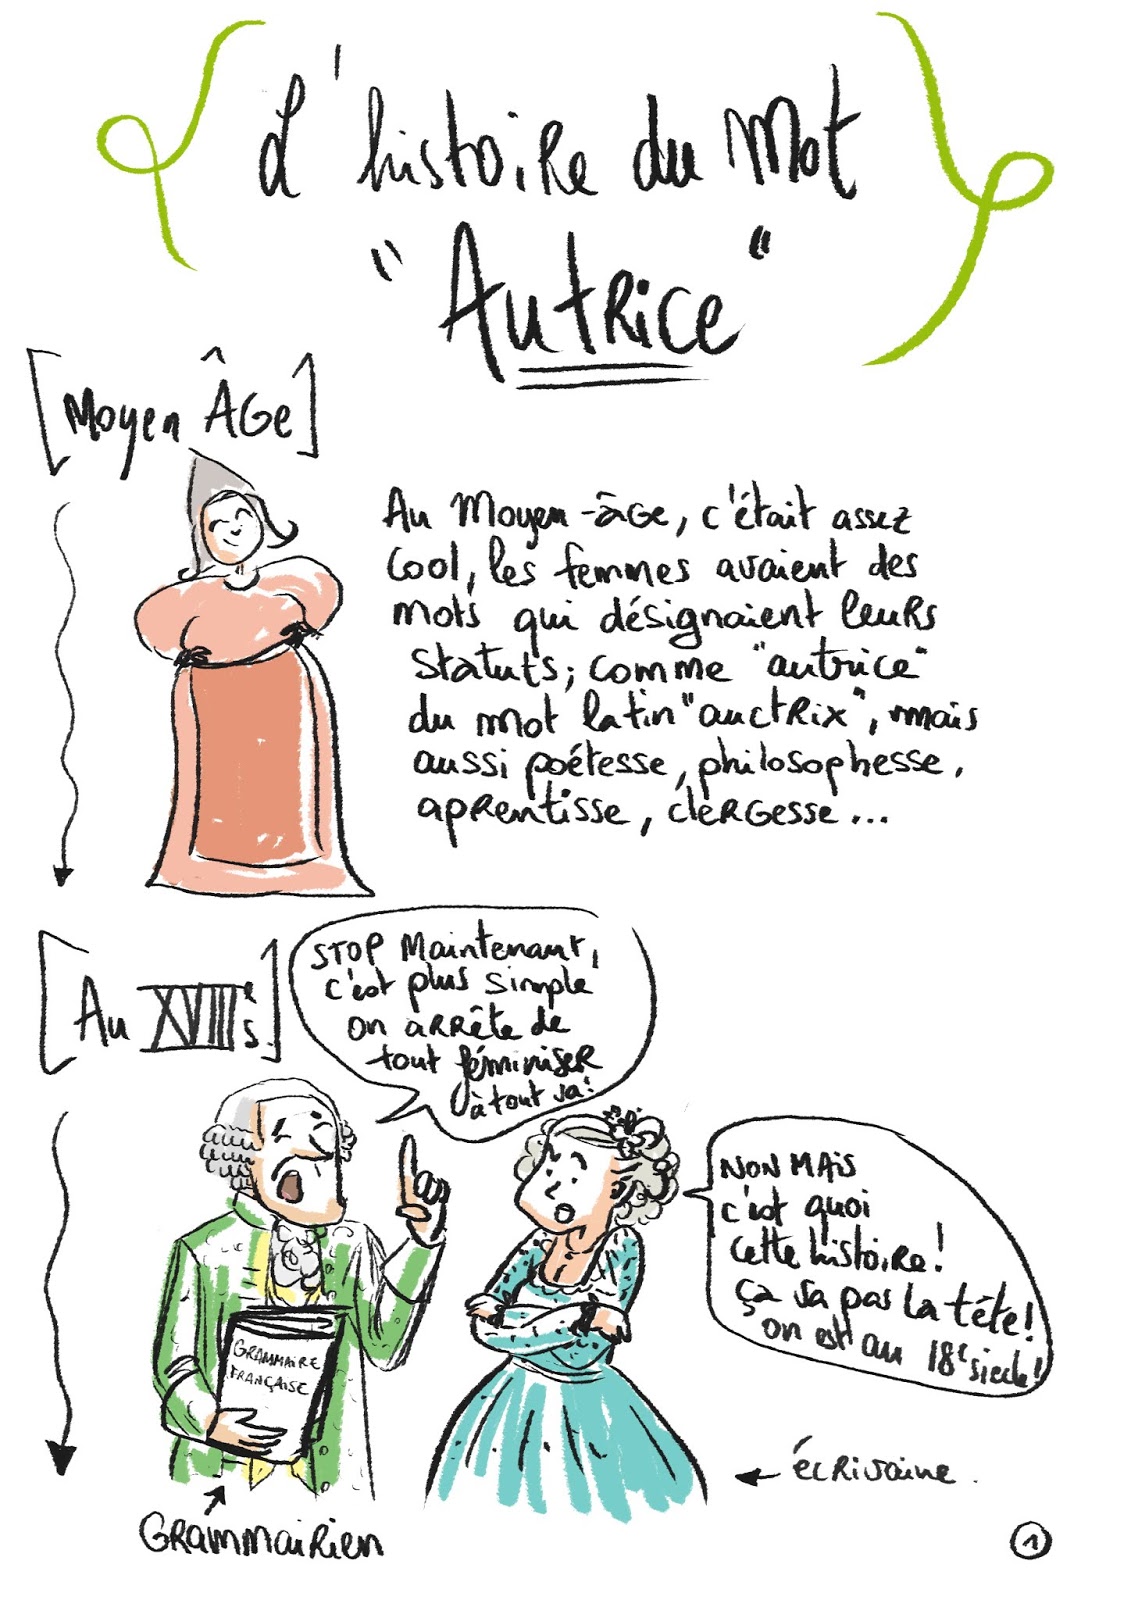 L'histoire du mot
"Autrice"
[Moyen Âge]
Au Moyen-âge, c'était assez
cool, les femmes avaient des
mots qui désignaient leurs
statuts; comme "autrice"
du mot latin "auctrix", mais
aussi poétesse, philosophesse,
aprentisse, clergesse...
[Au XVIIIe s]
STOP Maintenant,
c'est plus simple
on arrête de
tout féminiser
à tout va!
NON MAIS
c'est quoi
cette histoire!
ça va pas la tête!
on est au 18e siecle!
GRAMMAIRE
FRANÇAISE
écrivaine.
Grammairien
1